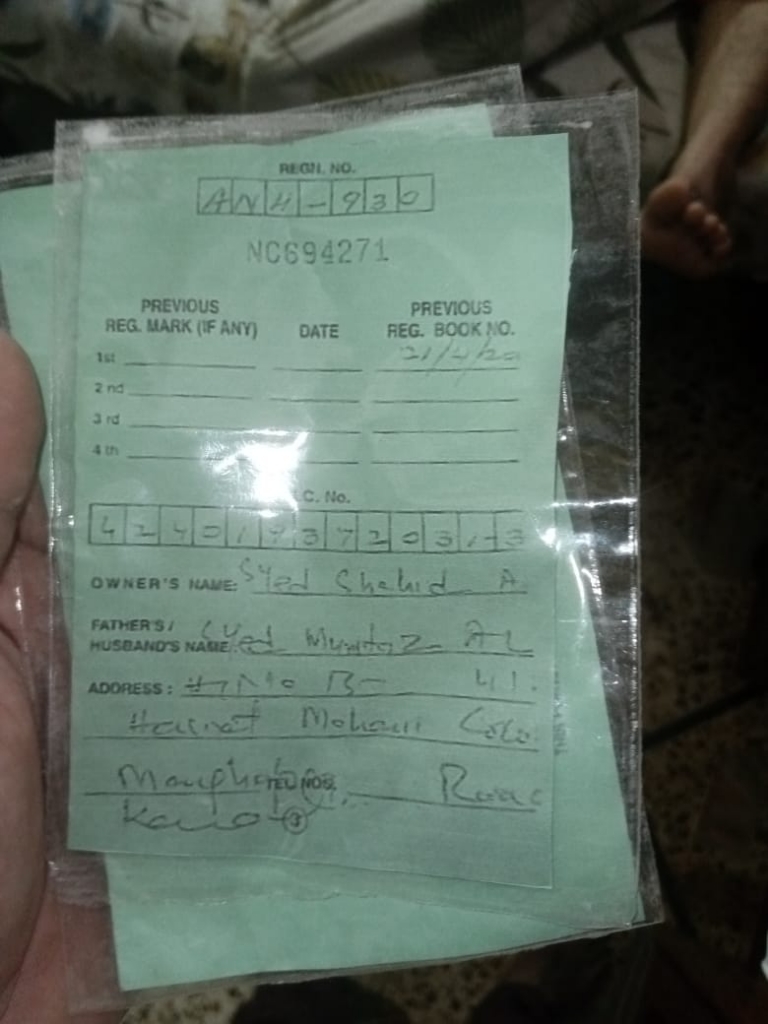 REGN. NO.
ANH-930
NC694271
PREVIOUS REG. MARK (IF ANY) DATE PREVIOUS REG. BOOK NO.
1st 21/4/20
2nd
3rd
4th
I.C. No.
OWNER'S NAME: Syed Shahid A
FATHER'S / HUSBAND'S NAME: Syed Mumtaz AL
ADDRESS: H No B- 41.
Hasrat Mohani Colo
TEL NOS.
3